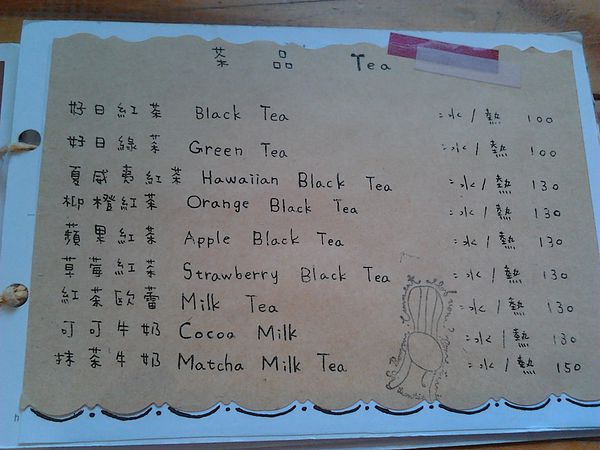 茶 品 Tea
好日紅茶 Black Tea 冰/熱 100
好日綠茶 Green Tea 冰/熱 100
夏威夷紅茶 Hawaiian Black Tea 冰/熱 130
柳橙紅茶 Orange Black Tea 冰/熱 130
蘋果紅茶 Apple Black Tea 冰/熱 130
草莓紅茶 Strawberry Black Tea 冰/熱 130
紅茶歐蕾 Milk Tea 冰/熱 130
可可牛奶 Cocoa Milk 冰/熱 130
抹茶牛奶 Matcha Milk Tea 冰/熱 150